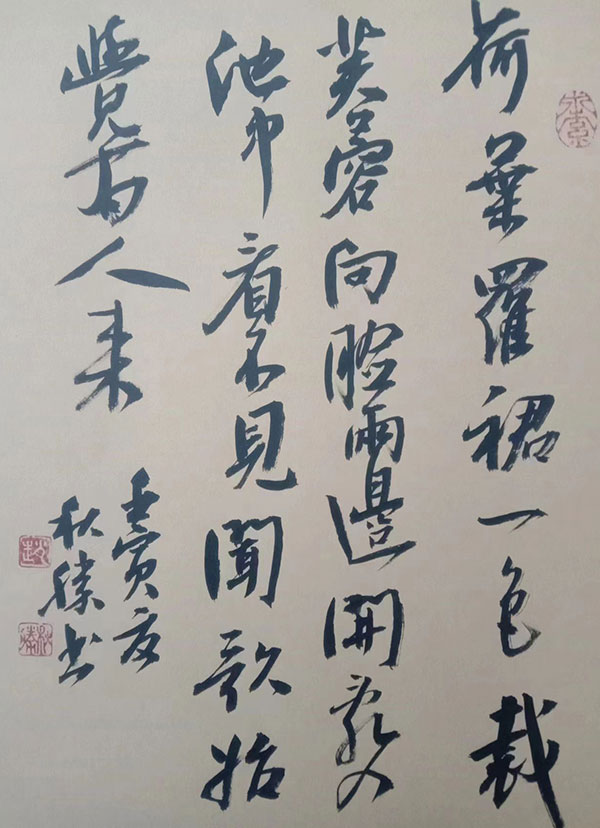 荷葉羅裙一色裁
芙蓉向臉兩邊開亂入
池中看不見聞歌始
覺有人来
壬寅夏
秋勝书